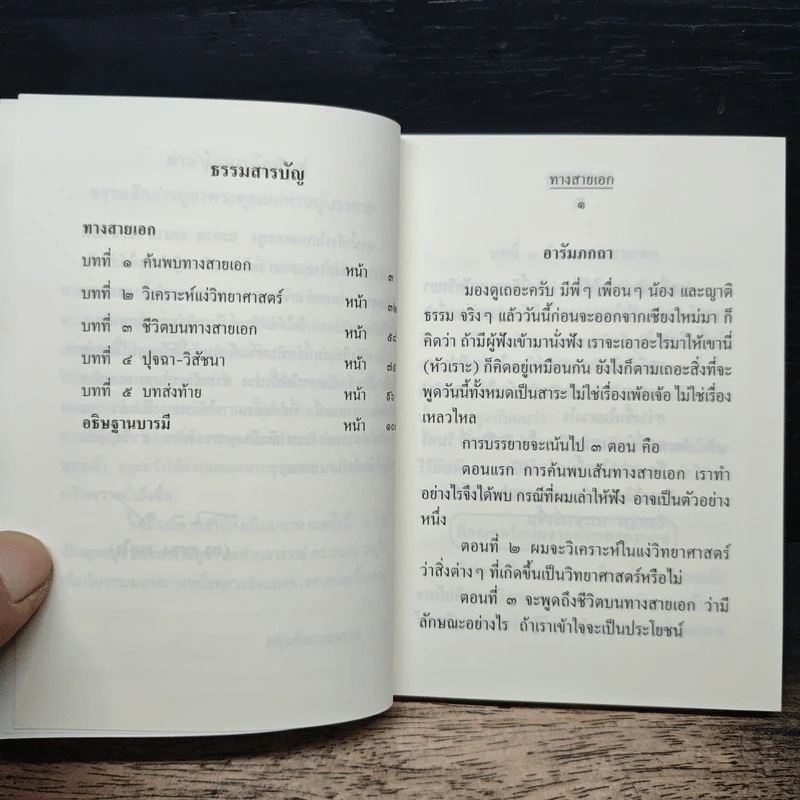 ธรรมสารบัญ
ทางสายเอก
บทที่ ๑ ค้นพบทางสายเอก หน้า ๓
บทที่ ๒ วิเคราะห์แง่วิทยาศาสตร์ หน้า ๓๒
บทที่ ๓ ชีวิตบนทางสายเอก หน้า ๕๘
บทที่ ๔ ปุจฉา-วิสัชนา หน้า ๗๙
บทที่ ๕ บทส่งท้าย หน้า ๙๖
อธิษฐานบารมี หน้า
ทางสายเอก
๑
อารัมภกถา
มองดูเถอะครับ มีพี่ๆ เพื่อนๆ น้อง และญาติ
ธรรม จริงๆ แล้ววันนี้ก่อนจะออกจากเชียงใหม่มา ก็
คิดว่า ถ้ามีผู้ฟังเข้ามานั่งฟัง เราจะเอาอะไรมาให้เขานี่
(หัวเราะ) ก็คิดอยู่เหมือนกัน ยังไงก็ตามเถอะสิ่งที่จะ
พูดวันนี้ทั้งหมดเป็นสาระ ไม่ใช่เรื่องเพ้อเจ้อ ไม่ใช่เรื่อง
เหลวไหล
การบรรยายจะเน้นไป ๓ ตอน คือ
ตอนแรก การค้นพบเส้นทางสายเอก เราทำ
อย่างไรจึงได้พบ กรณีที่ผมเล่าให้ฟัง อาจเป็นตัวอย่าง
หนึ่ง
ตอนที่ ๒ ผมจะวิเคราะห์ในแง่วิทยาศาสตร์
ว่าสิ่งต่างๆ ที่เกิดขึ้นเป็นวิทยาศาสตร์หรือไม่
ตอนที่ ๓ จะพูดถึงชีวิตบนทางสายเอก ว่ามี
ลักษณะอย่างไร ถ้าเราเข้าใจจะเป็นประโยชน์